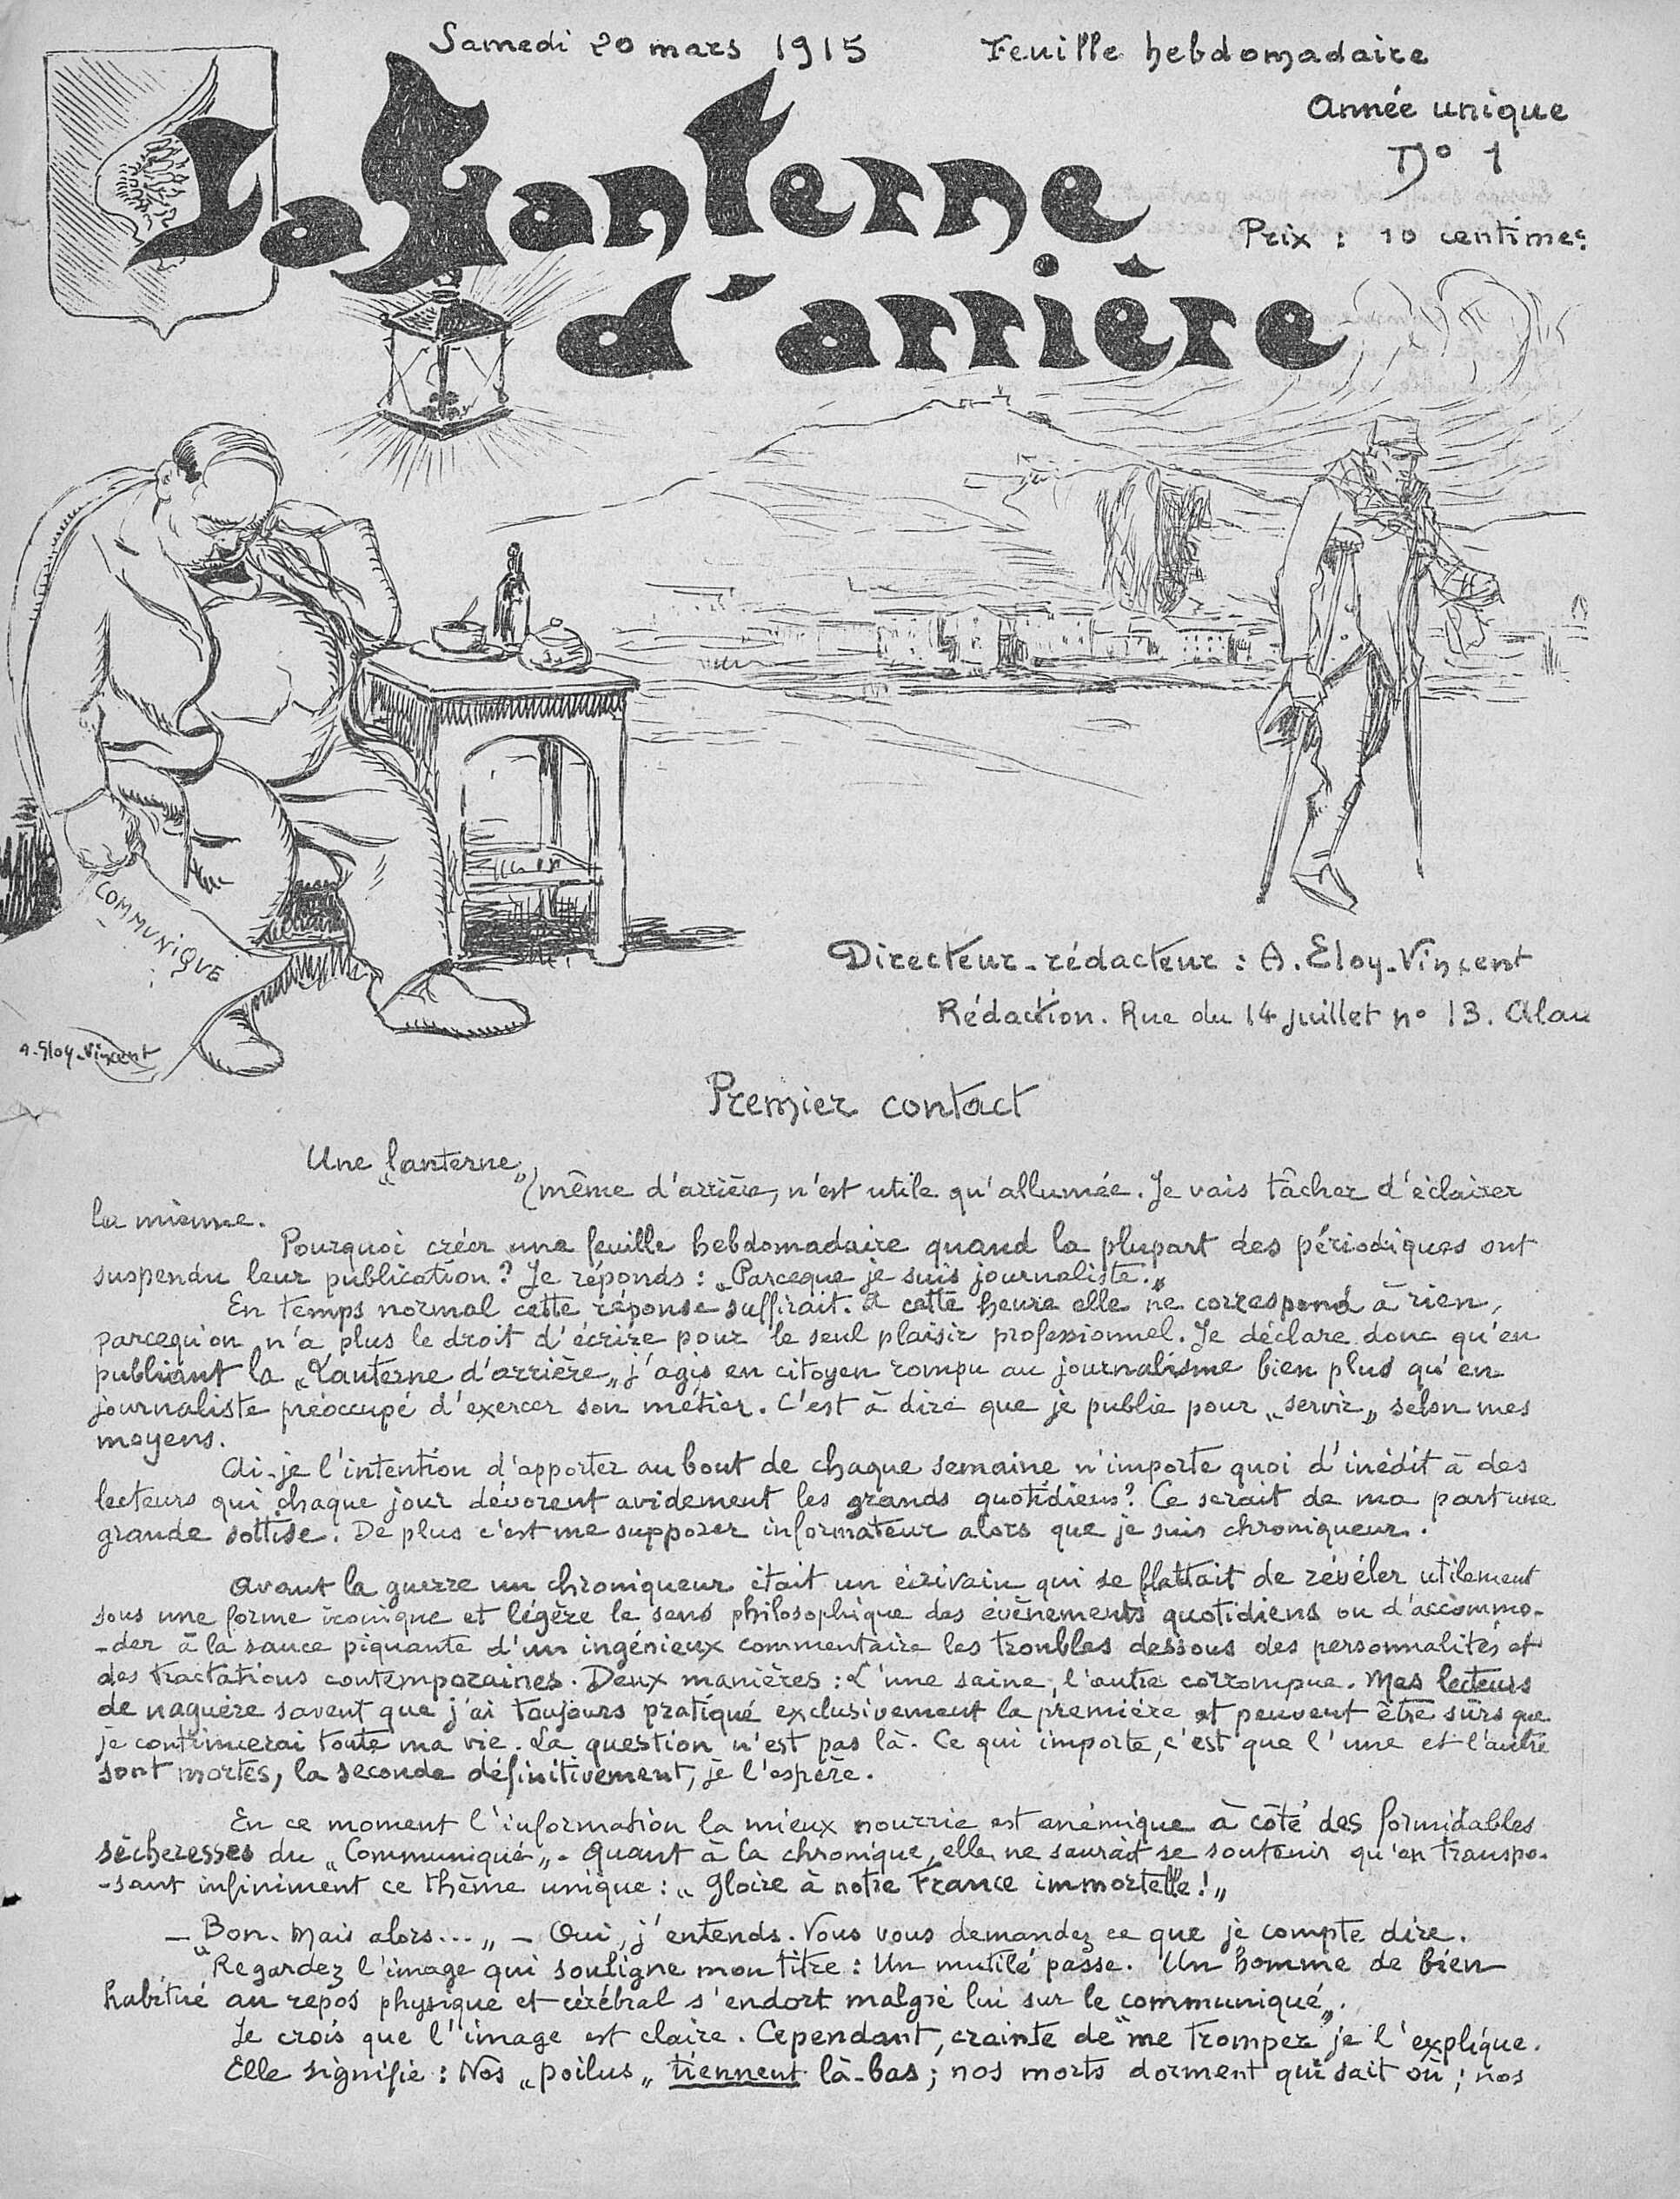 Samedi 20 mars 1915 Feuille hebdomadaire
Année unique
No 1
Prix : 10 centimes
La Lanterne
d'arrière
COMMUNIQUE
Directeur-rédacteur : A. Eloy-Vincent
Rédaction. Rue du 14 juillet no 13. Alau
A. Eloy-Vincent
Premier contact
Une „lanterne„
(même d'arrière, n'est utile qu'allumée. Je vais tâcher d'éclairer
la mienne.
Pourquoi créer une feuille hebdomadaire quand la plupart des périodiques ont
suspendu leur publication ? Je réponds : „Parceque je suis journaliste.„
En temps normal cette réponse suffirait. A cette heure elle ne correspond à rien,
parcequ'on n'a plus le droit d'écrire pour le seul plaisir professionnel. Je déclare donc qu'en
publiant la „Lanterne d'arrière„ j'agis en citoyen rompu au journalisme bien plus qu'en
journaliste préoccupé d'exercer son métier. C'est à dire que je publie pour „servir„ selon mes
moyens.
Ai-je l'intention d'apporter au bout de chaque semaine n'importe quoi d'inédit à des
lecteurs qui chaque jour dévorent avidement les grands quotidiens ? Ce serait de ma part une
grande sottise. De plus c'est me supposer informateur alors que je suis chroniqueur.
Avant la guerre un chroniqueur était un écrivain qui se flattait de révéler utilement
sous une forme ironique et légère le sens philosophique des évènements quotidiens ou d'accommo-
-der à la sauce piquante d'un ingénieux commentaire les troubles dessous des personnalités et
des tractations contemporaines. Deux manières : L'une saine, l'autre corrompue. Mes lecteurs
de naguère savent que j'ai toujours pratiqué exclusivement la première et peuvent être sûrs que
je continuerai toute ma vie. La question n'est pas là. Ce qui importe, c'est que l'une et l'autre
sont mortes, la seconde définitivement, je l'espère.
En ce moment l'information la mieux nourrie est anémique à côté des formidables
sécheresses du „Communiqué„. Quant à la chronique, elle ne saurait se soutenir qu'en transpo-
-sant infiniment ce thème unique : „Gloire à notre France immortelle !„
— „Bon. Mais alors...„ — Oui, j'entends. Vous vous demandez ce que je compte dire.
Regardez l'image qui souligne mon titre : Un mutilé passe. Un homme de bien
habitué au repos physique et cérébral s'endort malgré lui sur le „communiqué„.
Je crois que l'image est claire. Cependant, crainte de me tromper je l'explique.
Elle signifie : Nos „poilus„ tiennent là-bas ; nos morts dorment qui sait où ; nos